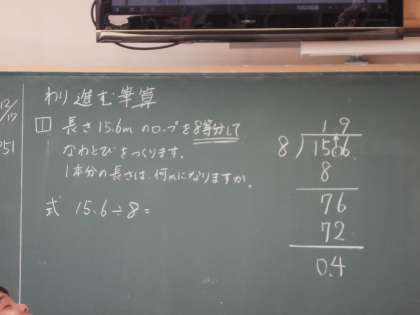 わり進む筆算
12/17
P51
1 長さ15.6mのロープを8等分して
なわとびをつくります。
1本分の長さは、何mになりますか。
式 15.6÷8=
1 9
8)15.6
8
76
72
0.4